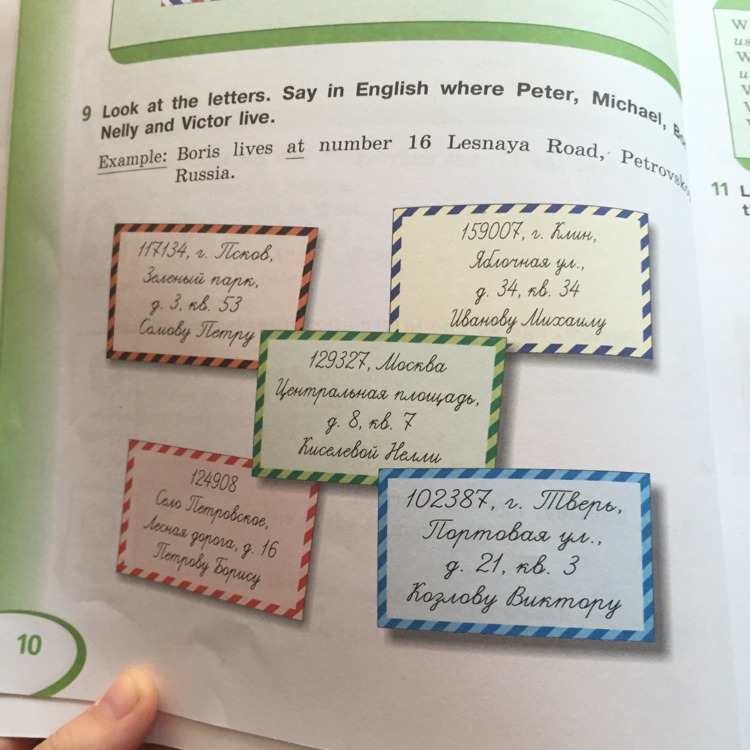 9 Look at the letters. Say in English where Peter, Michael,
Nelly and Victor live.
Example: Boris lives at number 16 Lesnaya Road,
Russia.
117134, г. Псков,
Зеленый парк,
д. 3, кв. 53
Сомову Петру
159007, г. Клин,
Яблочная ул.,
д. 34, кв. 34
Иванову Михаилу
129327, Москва
Центральная площадь,
д. 8, кв. 7
Киселевой Нелли
124908
Село Петровское,
Лесная дорога, д. 16
Петрову Борису
102387, г. Тверь,
Портовая ул.,
д. 21, кв. 3
Козлову Виктору
10
11